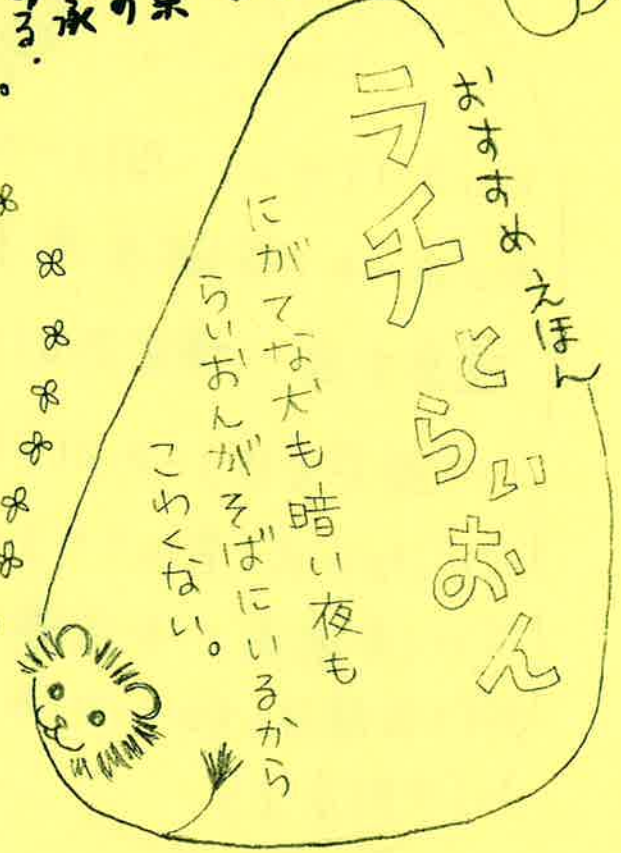 おすすめえほん
ラチとらいおん
にがてな犬も暗い夜も
らいおんがそばにいるから
こわくない。